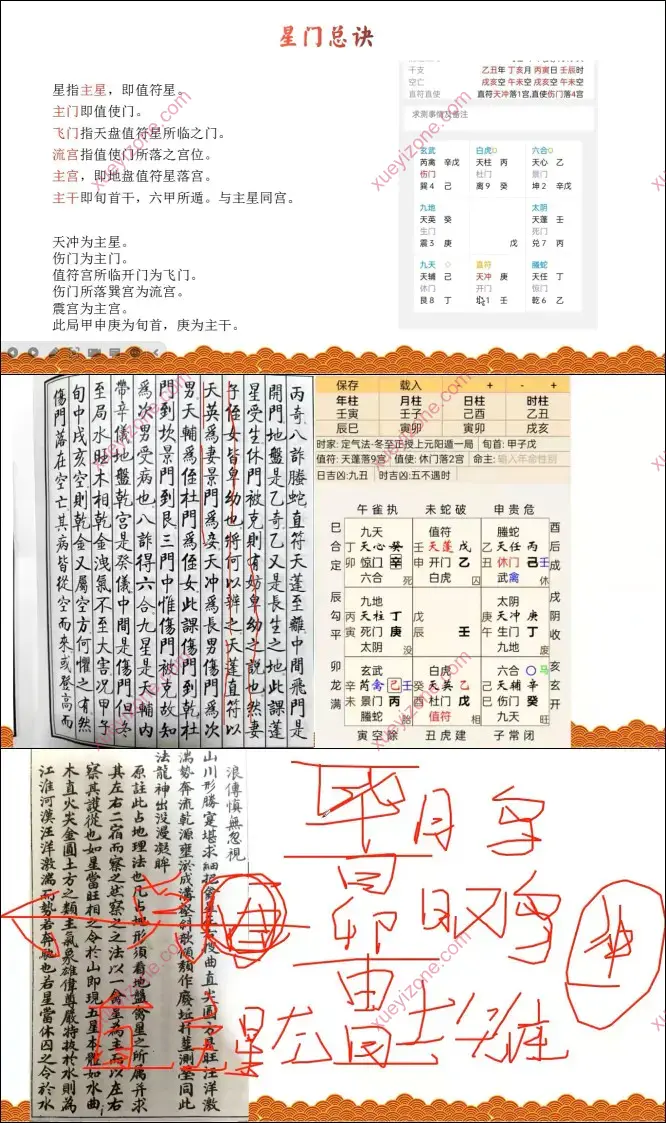 星门总诀
星指主星，即值符星。
主门即值使门。
飞门指天盘值符星所临之门。
流宫指值使门所落之宫位。
主宫，即地盘值符星落宫。
主干即旬首干，六甲所遁。与主星同宫。
天冲为主星。
伤门为主门。
值符宫所临开门为飞门。
伤门所落巽宫为流宫。
震宫为主宫。
此局甲申庚为旬首，庚为主干。
干支 乙丑年 丁亥月 丙寅日 壬辰时
空亡 戌亥空 午未空 戌亥空 午未空
直符直使 直符天冲落1宫,直使伤门落4宫
求测事情及备注
玄武 白虎 六合
芮禽 辛戊 天柱 丙 天心 乙
伤门 杜门 景门
巽4 己 离9 癸 坤2 辛戊
九地 太阴
天英 癸 天蓬 壬
生门 死门
震3 庚 戊 兑7 丙
九天 直符 螣蛇
天辅 己 天冲 庚 天任 丁
休门 开门 惊门
艮8 丁 坎1 壬 乾6 乙
丙奇八詐螣蛇直符天蓬至離中間飛門是
開門地盤是乙奇乙又是長生之地此課蓬
星受生休門被克則有妨卑幼之說也然妻
子侄女皆卑幼也將何以辨之天蓬直符以
天英爲妻景門爲妾天冲爲長男傷門爲次
男天輔爲侄杜門爲侄女此課傷門到乾杜
門到坎景門到艮三門中惟傷門被克故知
爲次男受病也八詐得六合九星是天輔內
帶辛儀地盤乾宮是癸儀中間是傷門但冬
至局水旺木相乾金洩氣不至大害況甲子
旬中戌亥空則乾金又屬空方何懼之有然
傷門落在空亡其病皆從空而來或登高而
保存 载入 - + - +
年柱 月柱 日柱 时柱
壬寅 壬子 己酉 乙丑
辰巳 寅卯 寅卯 戌亥
时家: 定气法·冬至正授上元阳遁一局 旬首: 甲子戊
值符: 天蓬落9宫 值使: 休门落2宫 命主: 输入年命性别
日吉凶:九丑 时吉凶:五不遇时
午雀执 未蛇破 申贵危
九天 值符 螣蛇
丁 天心 癸 壬 天蓬 戊 乙 天任 丙
卯 惊门 辛 申 开门 乙 丑 休门 己 壬
六合 死 白虎 囚 武禽 休
九地 太阴
丙 天柱 丁 戊 庚 天冲 庚
寅 死门 庚 辰 壬 午 生门 丁
太阴 没 九地 废
玄武 白虎 六合
辛 芮禽 己 壬 癸 天英 乙 己 天辅 辛
未 景门 丙 酉 杜门 戊 巳 伤门 癸
螣蛇 胎 值符 相 九天 旺
寅空除 丑虎建 子常闭
巳合定
辰勾平
卯龙满
酉后成
戌阴收
亥玄开
浪傳慎無忽視
山川形勝寔堪求細把禽星左右搜曲直尖圓囚旺汪洋激
湍勢奔流乾源壅淤成溝壑斜歌傾頹作廢坵井莖測壑同此
法龍神出没漫凝眸
原註此占地理法也凡占地形須看地盤禽星之所屬并求
其左右二宿而察之其察之之法以一禽星爲主而以左右
察其護從也如星當旺相之令於山即現五星本體如水曲
木直火尖金圓土方之類主氣象雄偉尊嚴特抜於水則為
江淮河漢汪洋激湍而勢若奔馳也若星當休囚之令於水
毕月乌
昴日鸡
xueyizone.com